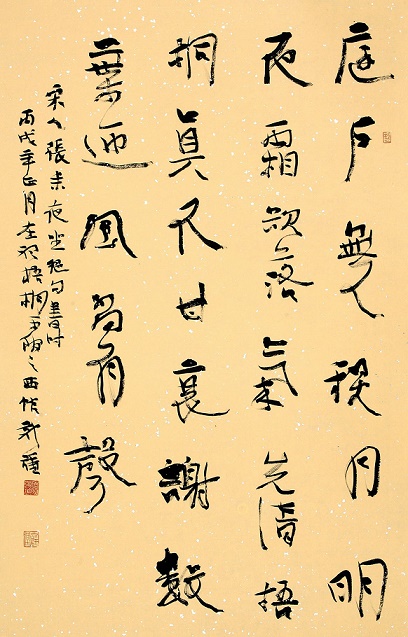 庭戶無人秋月明
夜霜欲落氣先清梧
桐眞不甘衰謝數
葉迎風尚有聲
宋人張耒夜坐絕句
丙戌年正月 梧桐 之西